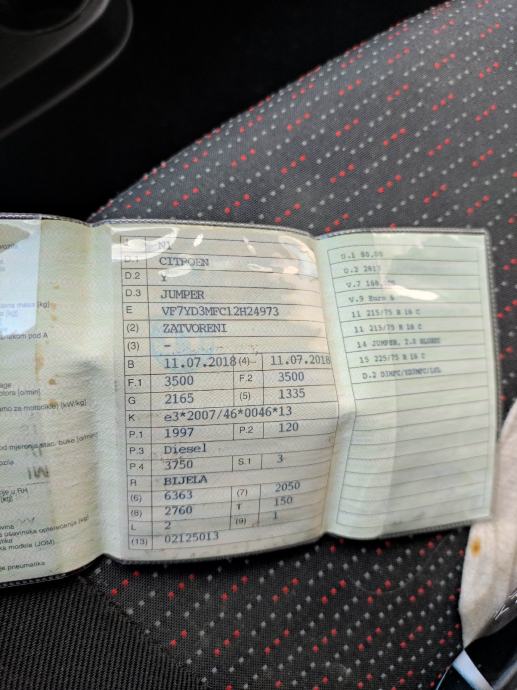 J N1
D.1 CITROEN
D.2 Y
D.3 JUMPER
E VF7YD3MFC12H24973
(2) ZATVORENI
(3) -
B 11.07.2018 (4) 11.07.2018
F.1 3500 F.2 3500
G 2165 (5) 1335
K e3*2007/46*0046*13
P.1 1997 P.2 120
P.3 Diesel
P.4 3750 S.1 3
R BIJELA
(6) 6363 (7) 2050
(8) 2760 T 150
L 2 (9) 1
(13) 02125013
U.1 80,00
U.2 2813
V.7 168,
V.9 Euro 6
11 215/75 R 16 C
11 215/75 R 16 C
14 JUMPER, 2.0 BLUEHDI
15 225/75 R 16 C
masa [kg]
kom pod A
[o/min]
mo za motocikle) (kW/kg)
od mjerenja stac. buke [o/min]
je u RH
[kg]
osovinska opterećenja [kg]
ka modela (JOM)
je pneumatika